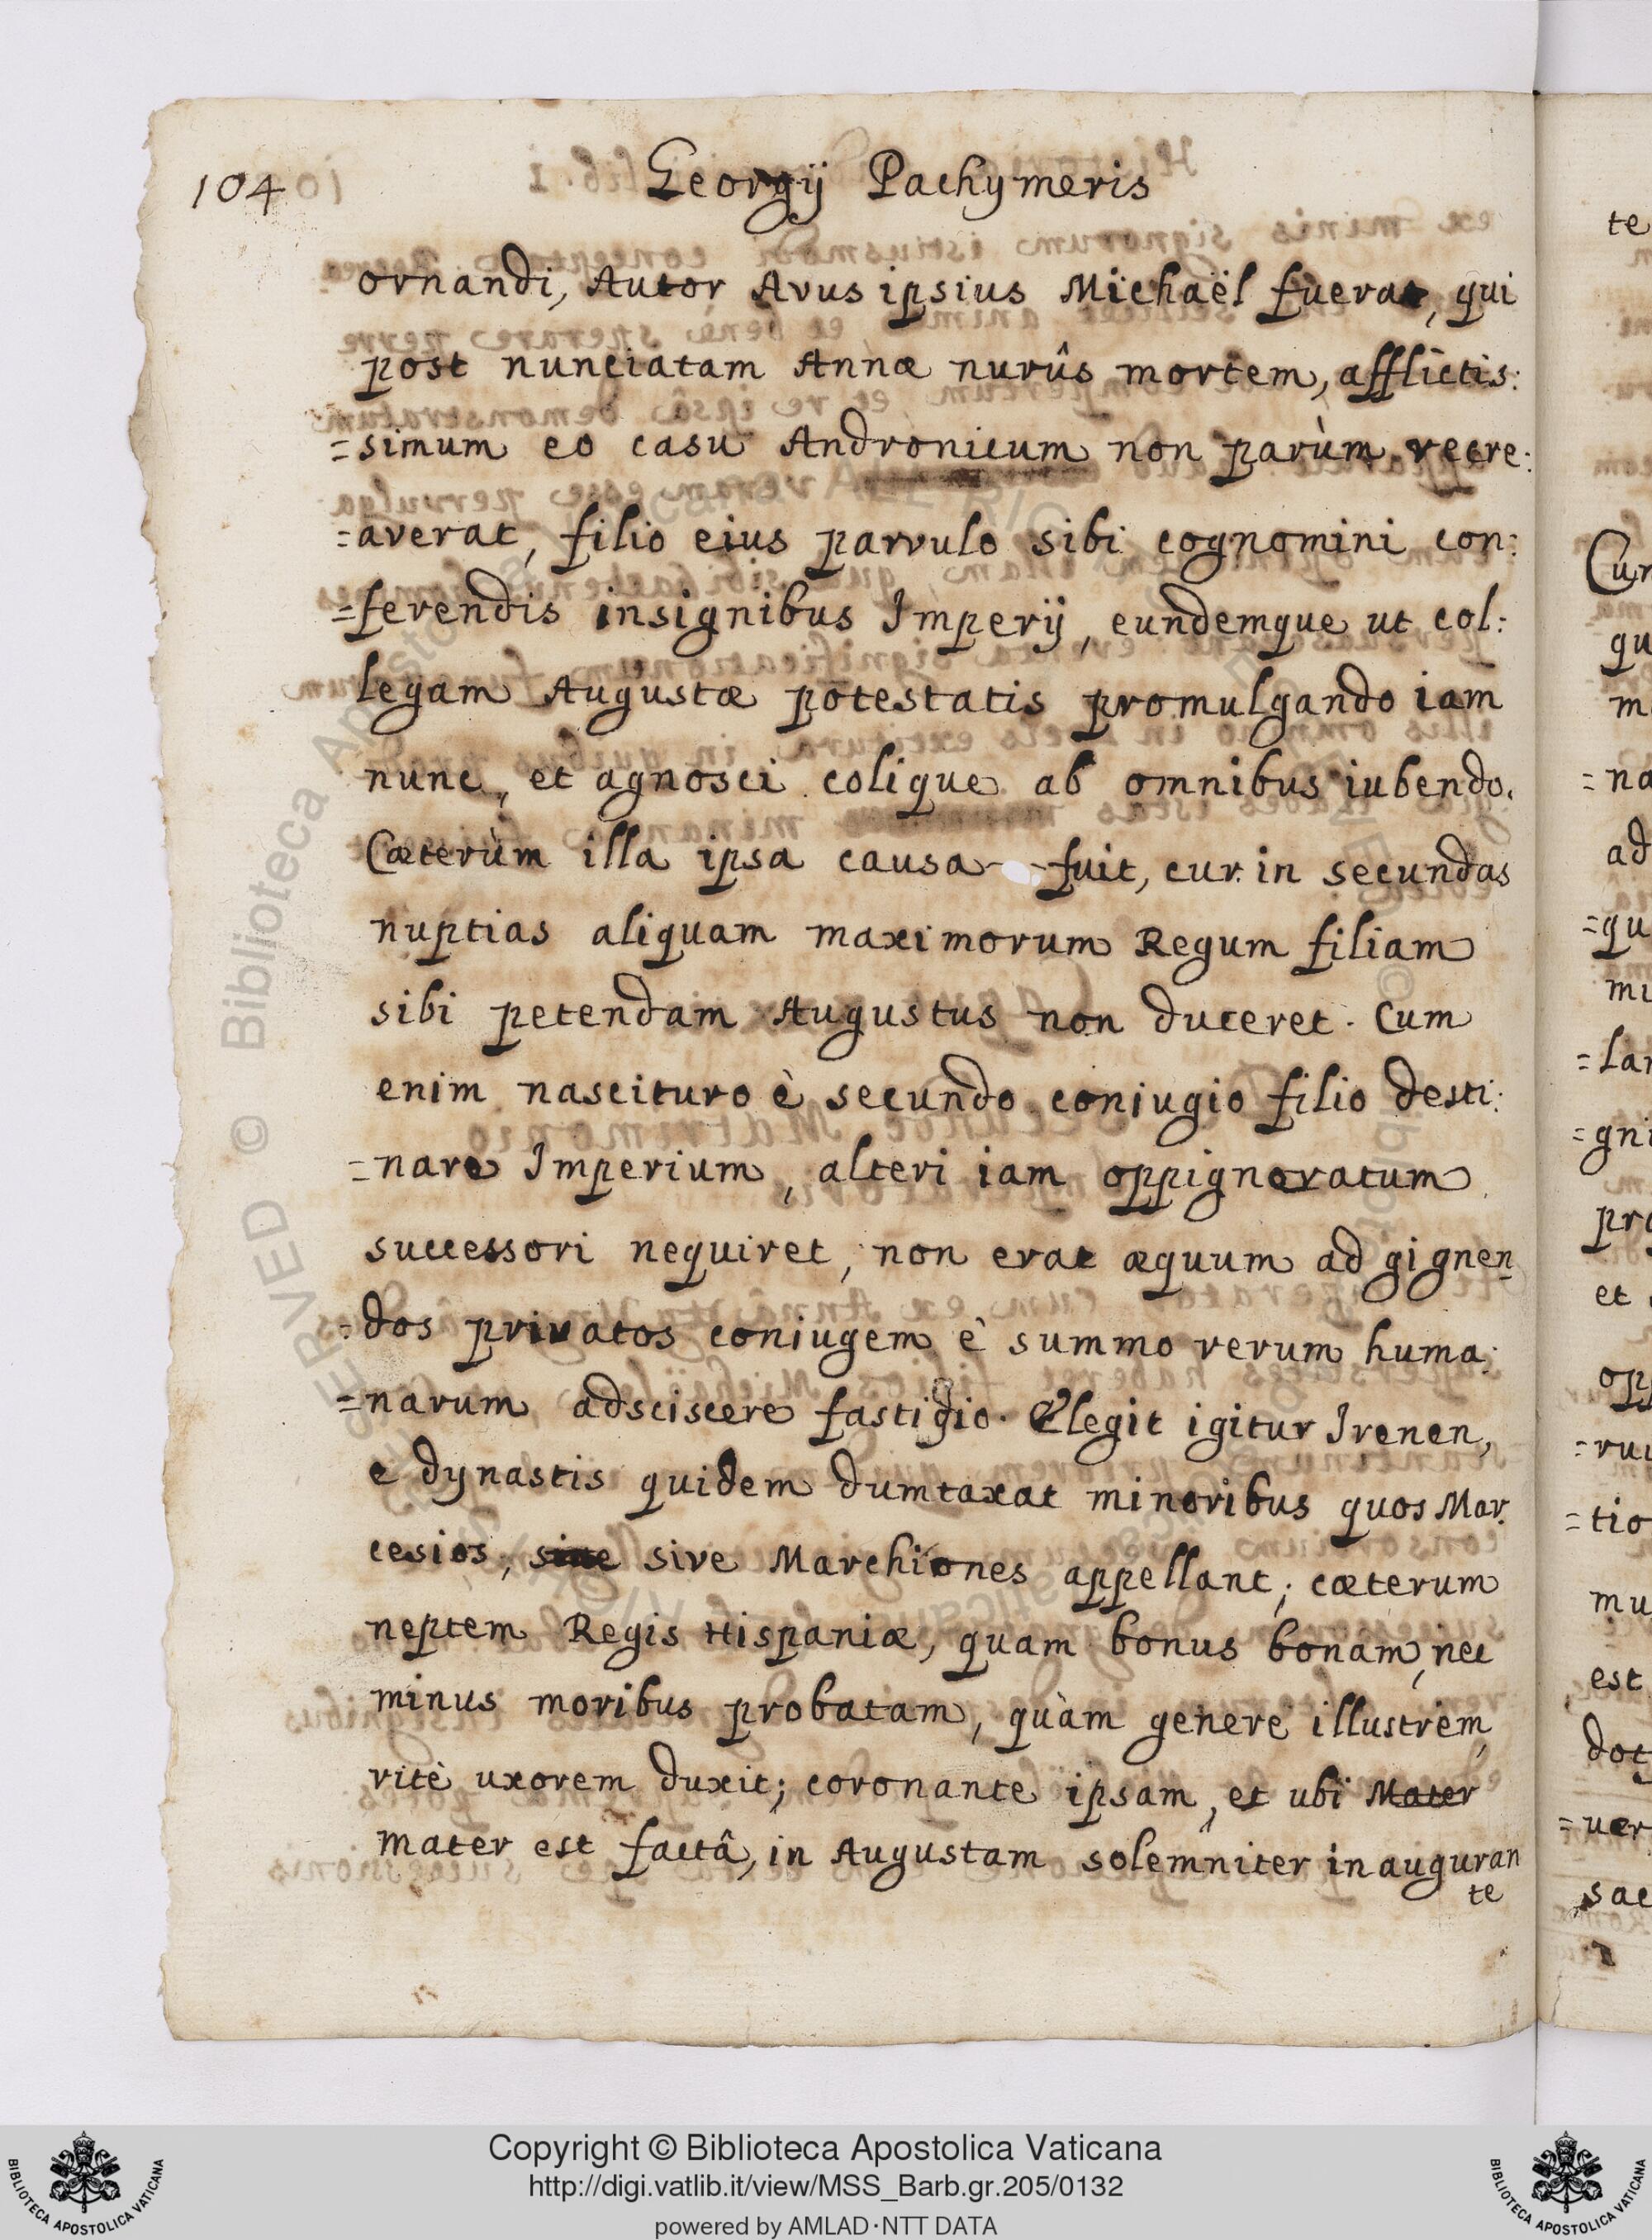 104
Georgij Pachymeris
ornandi, Autor Avus ipsius Michaël fuerat, qui
post nunciatam Annæ nurûs mortem, afflictis:
=simum eo casu Andronicum non parùm recre:
=averat, filio eius parvulo sibi cognomini con:
=ferendis insignibus Imperij, eundemque ut col:
legam Augustæ potestatis promulgando iam
nunc, et agnosci colique ab omnibus iubendo.
Cæterùm illa ipsa causa fuit, cur in secundas
nuptias aliquam maximorum Regum filiam
sibi petendam Augustus non duceret. Cum
enim nascituro è secundo coniugio filio desti:
=nare Imperium, alteri iam oppignoratum
successori nequiret, non erat æquum ad gignen
=dos privatos coniugem è summo rerum huma:
=narum adsciscere fastigio. Elegit igitur Irenen,
e dynastis quidem dumtaxat minoribus quos Mar:
cesios, sive sive Marchiones appellant; cæterum
neptem Regis Hispaniæ, quam bonus bonam, nec
minus moribus probatam, quàm genere illustrem,
ritè uxorem duxit; coronante ipsam, et ubi Mater
mater est factâ, in Augustam solemniter inauguran
te
te
Cur
qu
m
=na
ad
=qu
mi
=lar
=gni
pro
et
opp
=ruu
=tio
mu
est
dot
=uer
sac
Copyright © Biblioteca Apostolica Vaticana
http://digi.vatlib.it/view/MSS_Barb.gr.205/0132
powered by AMLAD·NTT DATA
BIBLIOTECA APOSTOLICA VATICANA
BIBLIOTECA APOSTOLICA VATICANA